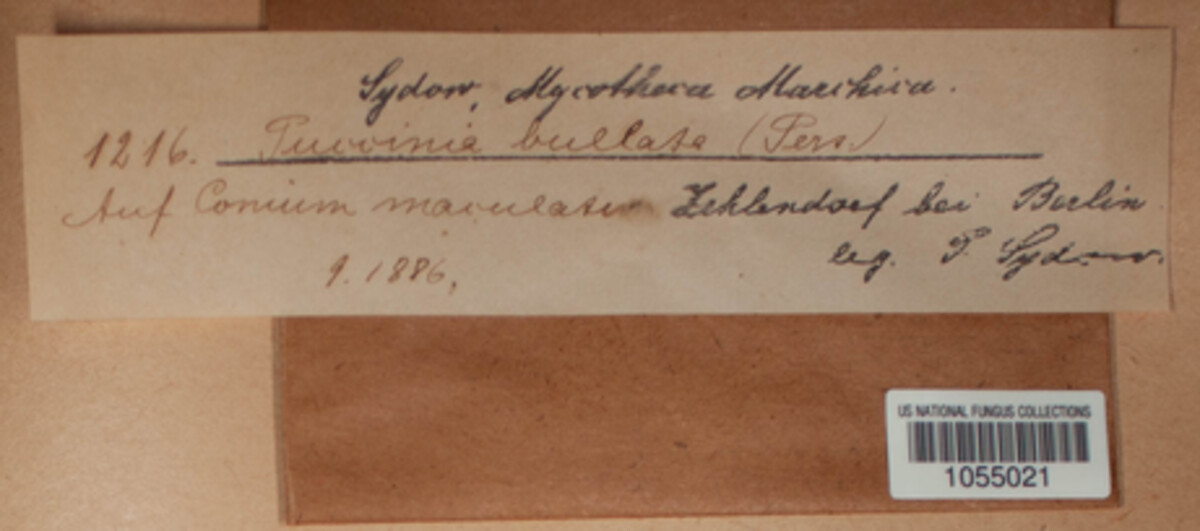 Sydow, Mycotheca Marchica.
1216. Puccinia bullata (Pers.)
Auf Conium maculatum Zehlendorf bei Berlin
9. 1886,
leg. P. Sydow.
US NATIONAL FUNGUS COLLECTIONS
1055021